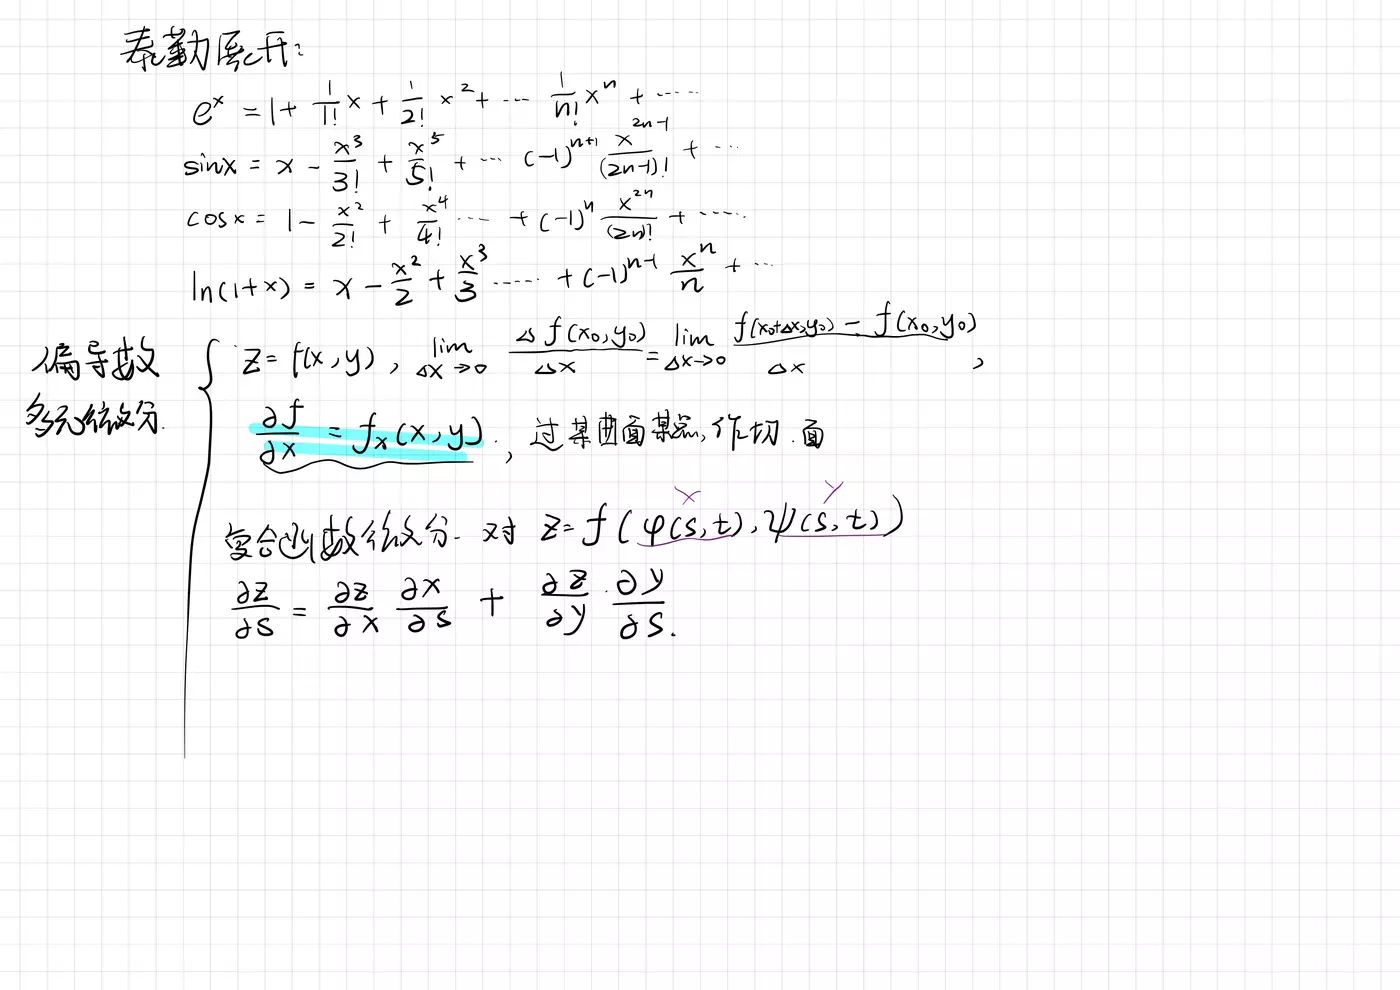 泰勤展开:
e^x = 1 + \frac{1}{1!}x + \frac{1}{2!}x^2 + ⋯ \frac{1}{n!}x^n + ⋯⋯
sinx = x - \frac{x^3}{3!} + \frac{x^5}{5!} + ⋯ (-1)^{n+1} \frac{x^{2n-1}}{(2n-1)!} + ⋯
cosx = 1 - \frac{x^2}{2!} + \frac{x^4}{4!} ⋯ + (-1)^n \frac{x^{2n}}{(2n)!} + ⋯⋯
ln(1+x) = x - \frac{x^2}{2} + \frac{x^3}{3} ⋯⋯ + (-1)^{n-1} \frac{x^n}{n} + ⋯
偏导数
多元微分.
z = f(x,y), \lim_{Δx→0} \frac{Δf(x_0,y_0)}{Δx} = \lim_{Δx→0} \frac{f(x_0+Δx,y_0) - f(x_0,y_0)}{Δx},
\frac{∂f}{∂x} = f_x(x,y). , 过某曲面某点,作切.面
x y
复合函数微分. 对 z = f(φ(s,t), ψ(s,t))
\frac{∂z}{∂s} = \frac{∂z}{∂x} \frac{∂x}{∂s} + \frac{∂z}{∂y} · \frac{∂y}{∂s}.